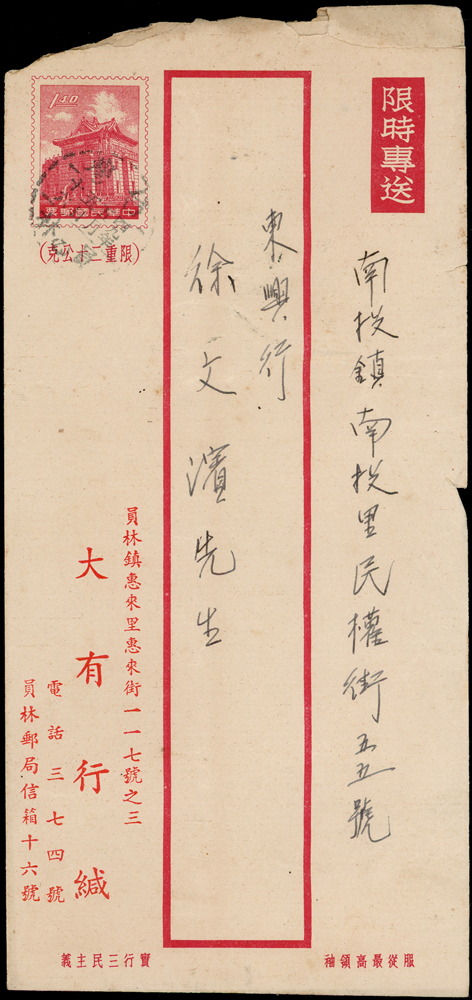 限時專送
南投鎮南投里民權街五五號
東興行
徐文濱先生
1.40
票郵國民華中
(限重二十公克)
員林鎮惠來里惠來街一一七號之三
大有行緘
電話三七四號
員林郵局信箱十六號
義主民三行實
袖領高最從服